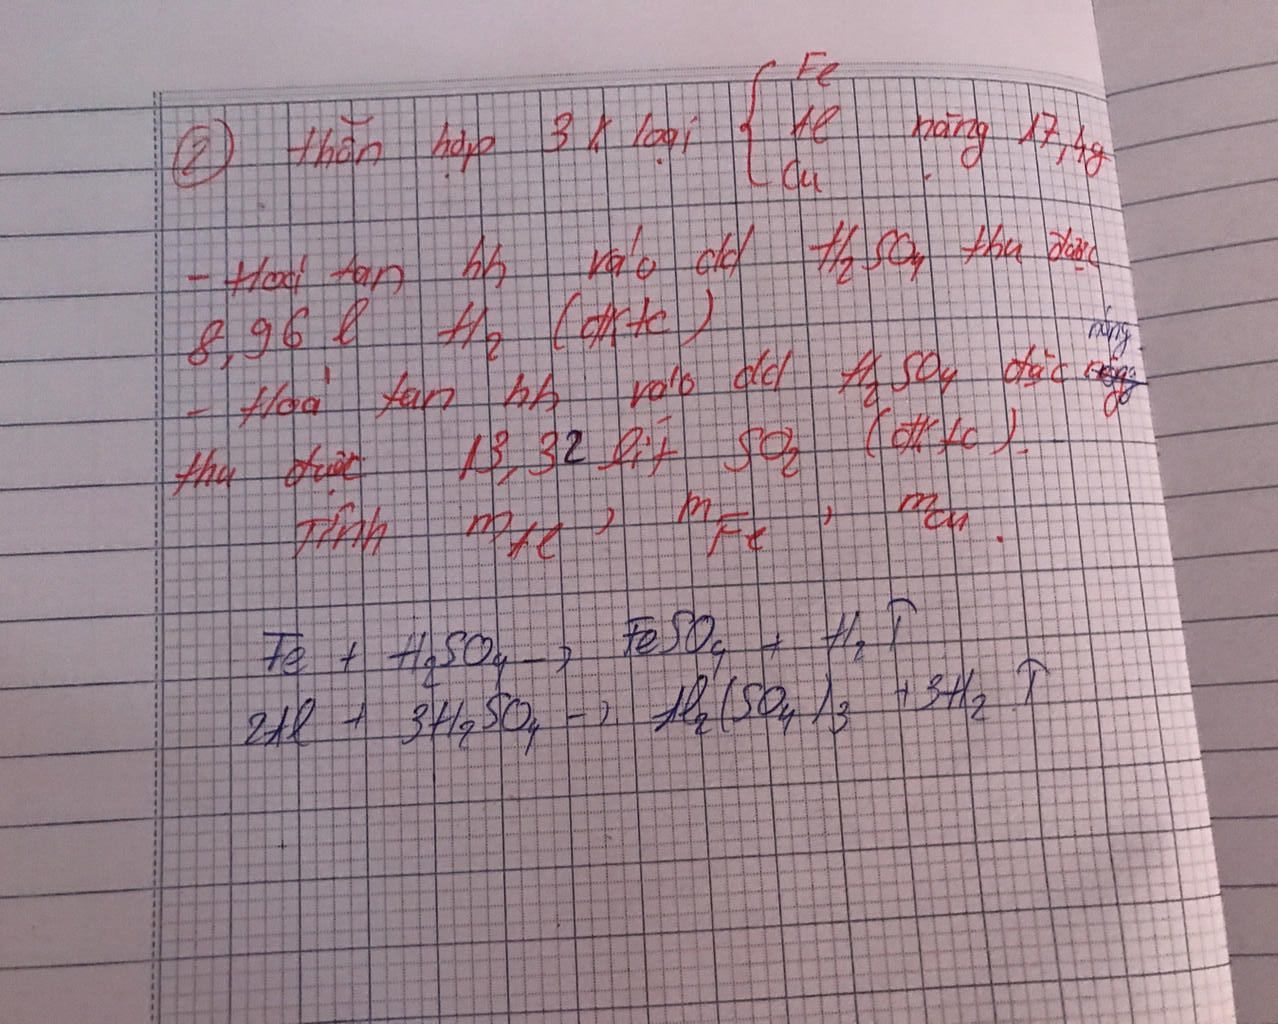 ② Hỗn hợp 3 k loại { Fe Al Cu nặng 17,4g
- Hoà tan hh vào dd H₂SO₄ thu được
8,96 l H₂ (đktc)
- Hoà tan hh vào dd H₂SO₄ đặc nóng
thu được 13,32 lít SO₂ (đktc).
Tính mAl, mFe, mCu.
Fe + H₂SO₄ → FeSO₄ + H₂ ↑
2Al + 3H₂SO₄ → Al₂(SO₄)₃ + 3H₂ ↑